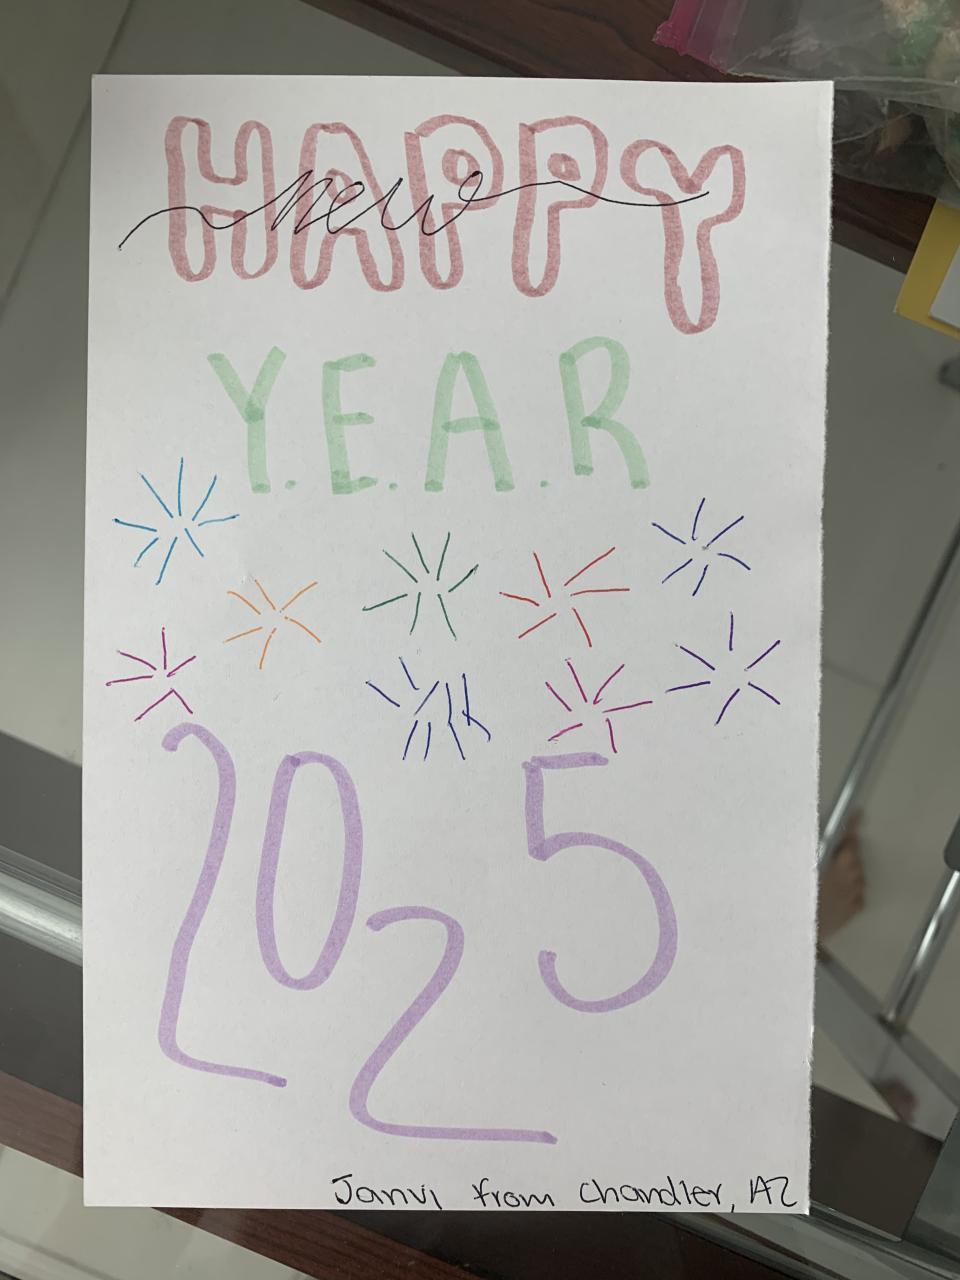 HAPPY
new
Y.E.A.R
2025
Janvi from Chandler, AZ